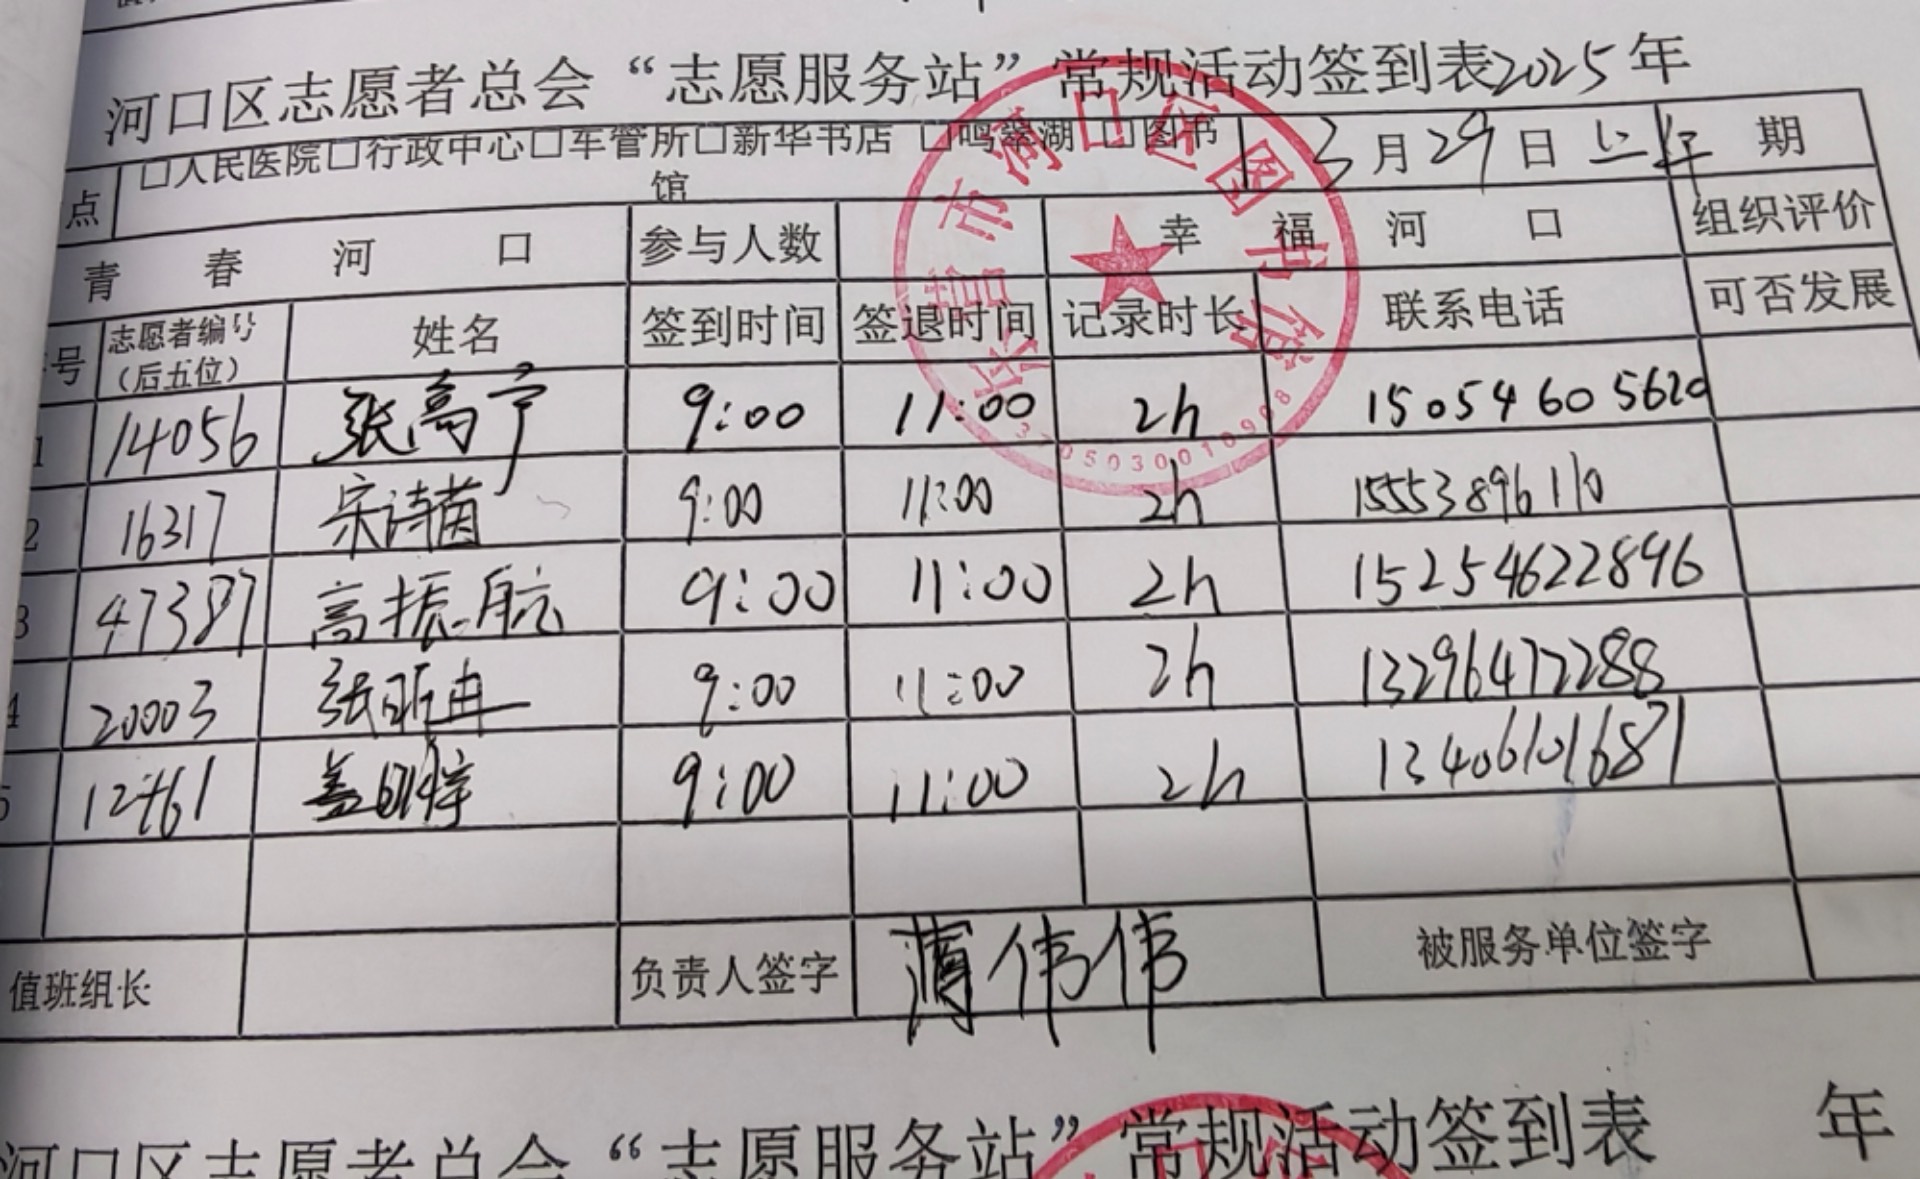 河口区志愿者总会“志愿服务站”常规活动签到表2025年
点 □人民医院□行政中心□车管所□新华书店 □鸣翠湖□图书馆 3月29日 上午 期
青春河口 参与人数 幸福河口 组织评价
号 志愿者编号（后五位） 姓名 签到时间 签退时间 记录时长 联系电话 可否发展
1 14056 张高宁 9:00 11:00 2h 15054605620
2 16317 宋诗茵 9:00 11:00 2h 15553896110
3 47387 高振航 9:00 11:00 2h 15254622896
4 20003 张昕冉 9:00 11:00 2h 13296472288
5 12461 盖 9:00 11:00 2h 13406101687
值班组长 负责人签字 薄伟伟 被服务单位签字
东营市河口区图书馆
3705030010908
河口区志愿者总会“志愿服务站”常规活动签到表 年